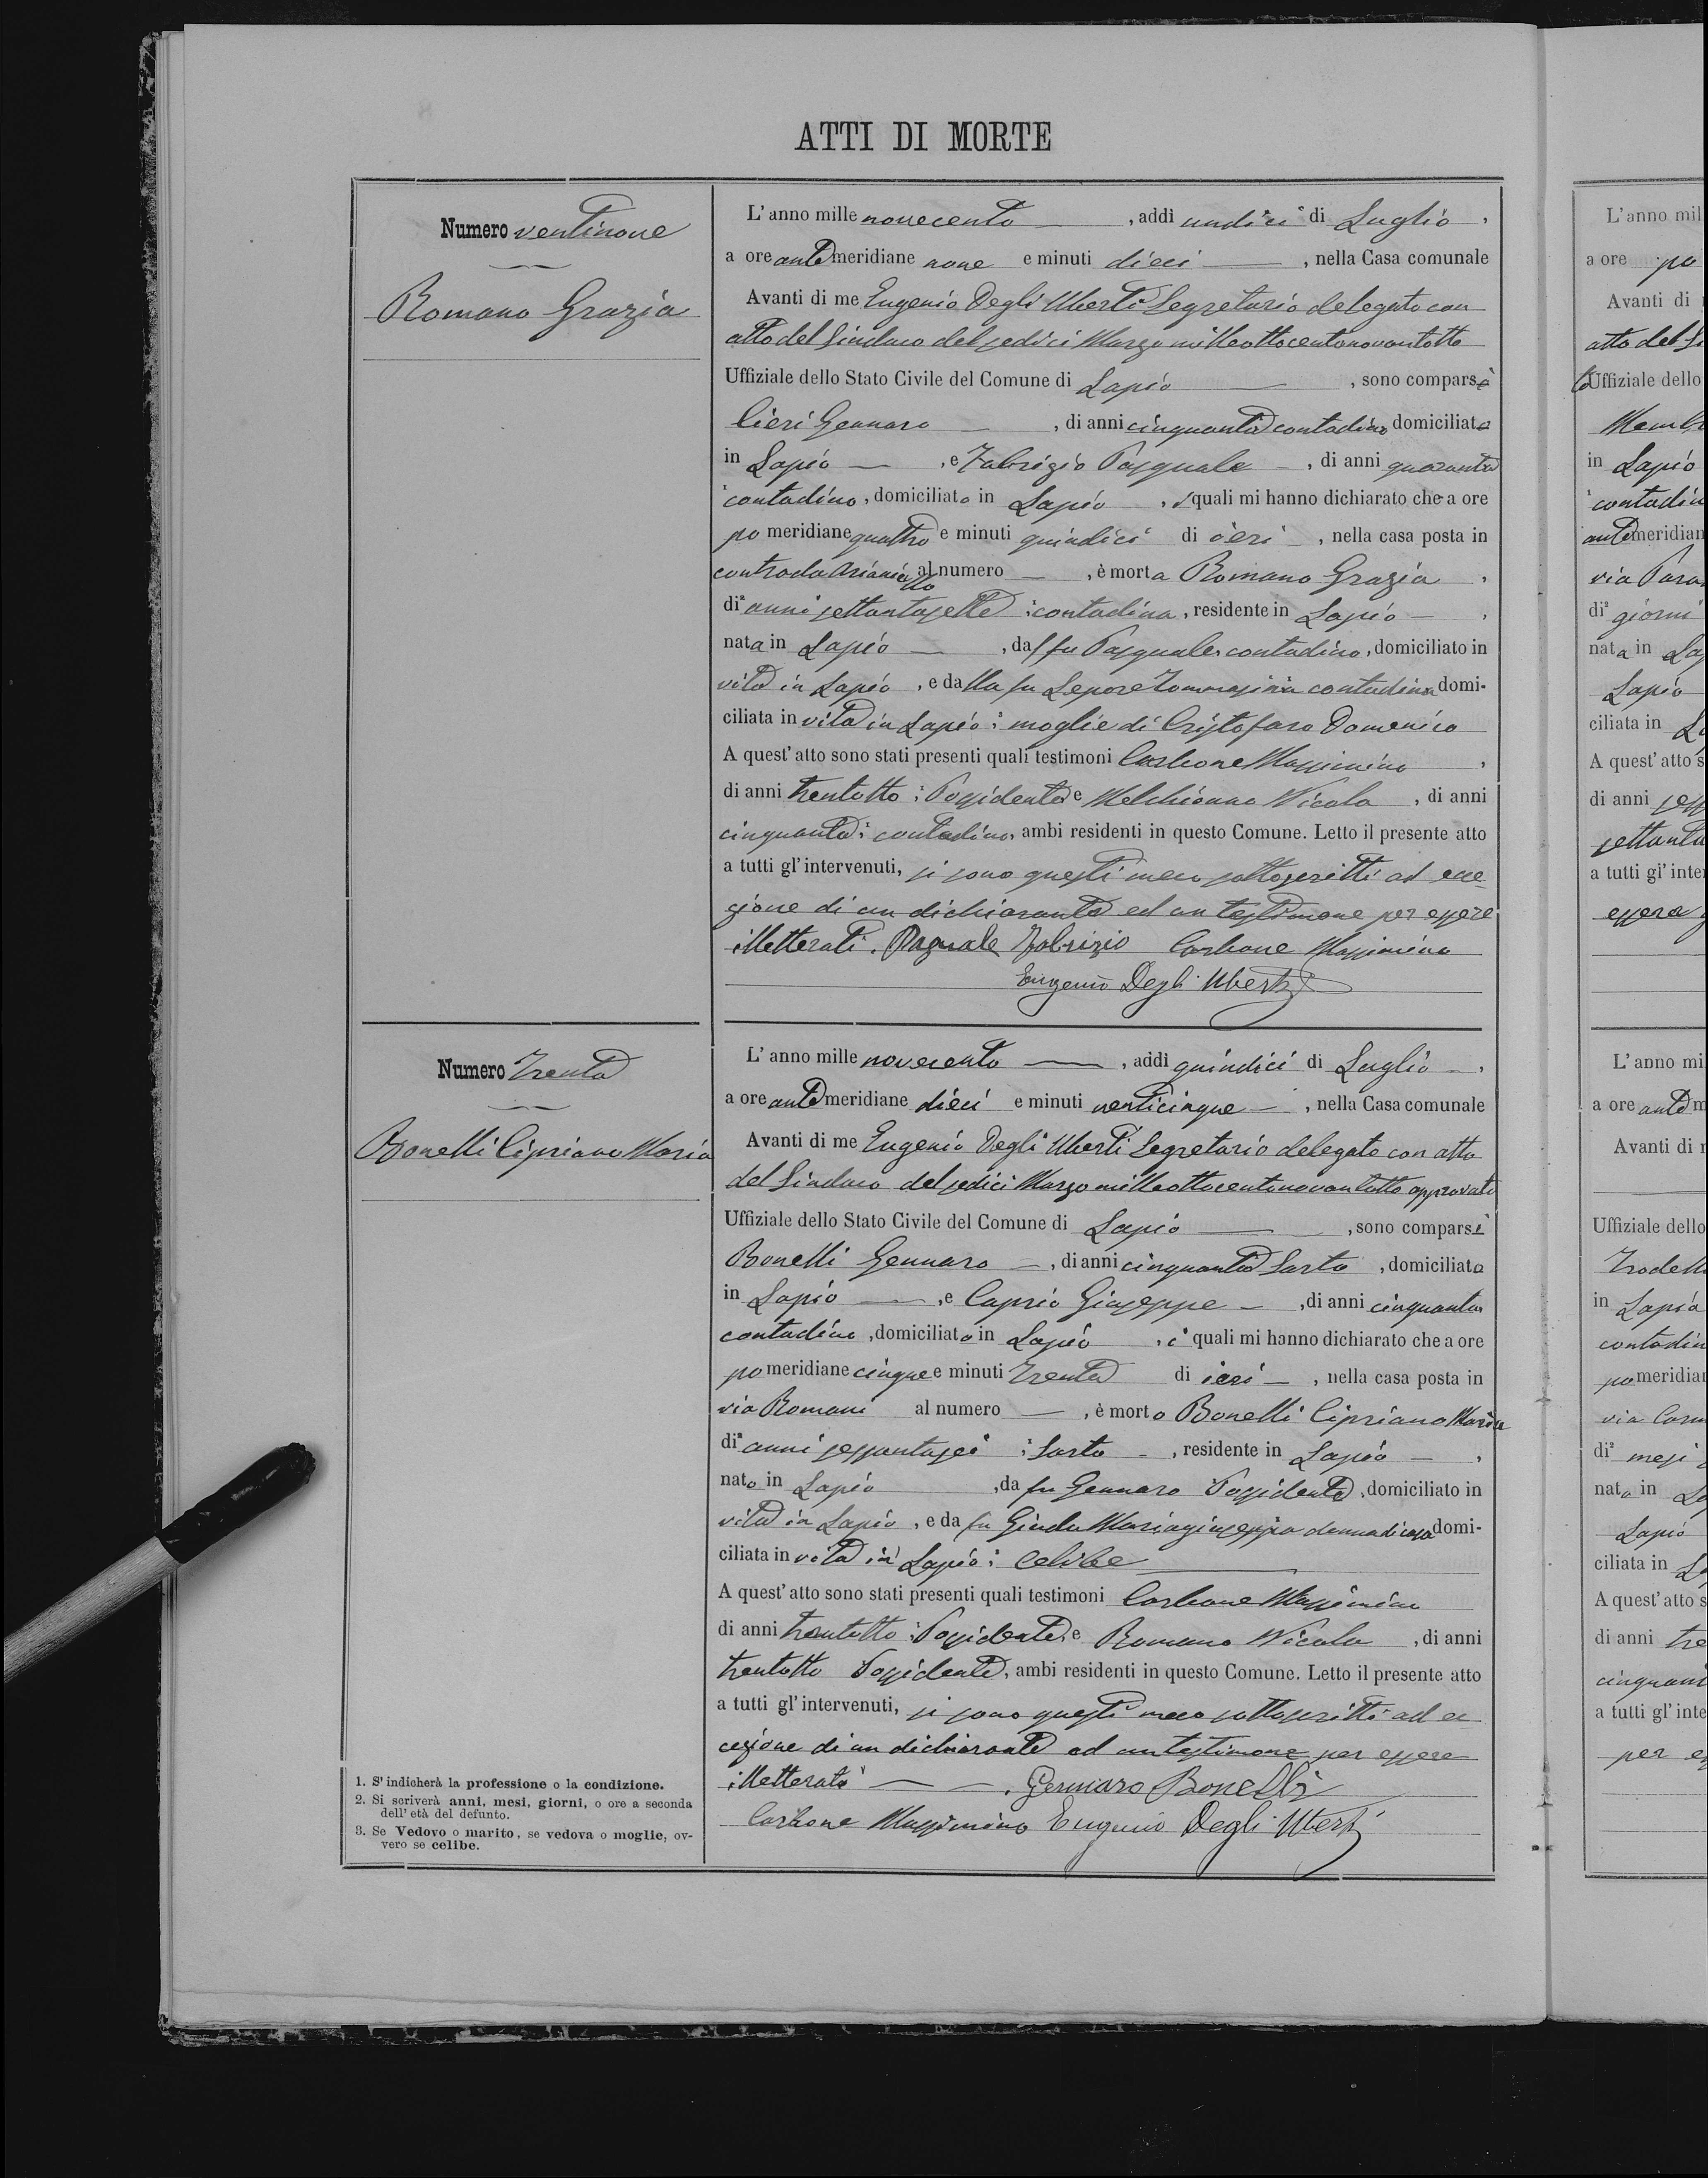 ATTI DI MORTE
Numero ventinove
Romano Grazia
L'anno mille novecento —, addì undici di Luglio,
a ore antimeridiane nove e minuti dieci —, nella Casa comunale
Avanti di me Eugenio Degli Uberti Segretario delegato con
atto del Sindaco del sedici Marzo milleottocentonovantotto
Uffiziale dello Stato Civile del Comune di Lapio —, sono comparsi
Cieri Gennaro —, di anni cinquanta contadino domiciliato
in Lapio —, e Fabrizio Pasquale —, di anni quaranta
contadino, domiciliato in Lapio, i quali mi hanno dichiarato che a ore
pomeridiane quattro e minuti quindici di ieri —, nella casa posta in
contrada Arianiello al numero —, è morta Romano Grazia,
di anni settantasette contadina, residente in Lapio —,
nata in Lapio —, da fu Pasquale, contadino, domiciliato in
vita in Lapio, e dalla fu Lepore Tommasina contadina domi-
ciliata in vita in Lapio; moglie di Cristofaro Domenico
A quest'atto sono stati presenti quali testimoni Carbone Massimino,
di anni trentotto; Possidente e Melchionna Nicola, di anni
cinquanta; contadino, ambi residenti in questo Comune. Letto il presente atto
a tutti gl'intervenuti, si sono questi meco sottoscritti ad ecce-
zione di un dichiarante ed un testimone per essere
illetterati. Pasquale Fabrizio Carbone Massimino
Eugenio Degli Uberti
Numero Trenta
Bonelli Cipriano Maria
L'anno mille novecento —, addì quindici di Luglio —,
a ore antimeridiane dieci e minuti venticinque —, nella Casa comunale
Avanti di me Eugenio Degli Uberti Segretario delegato con atto
del Sindaco del sedici Marzo milleottocentonovantotto approvato
Uffiziale dello Stato Civile del Comune di Lapio —, sono comparsi
Bonelli Gennaro —, di anni cinquanta Sarto, domiciliato
in Lapio —, e Caprio Giuseppe —, di anni cinquanta
contadino, domiciliato in Lapio, i quali mi hanno dichiarato che a ore
pomeridiane cinque e minuti Trenta di ieri —, nella casa posta in
via Romani al numero —, è morto Bonelli Cipriano Maria
di anni sessantasei; Sarto —, residente in Lapio —,
nato in Lapio, da fu Gennaro Possidente, domiciliato in
vita in Lapio, e da fu Maria giuseppa donna di casa domi-
ciliata in vita in Lapio; Celibe
A quest'atto sono stati presenti quali testimoni Carbone Massimino
di anni trentotto; Possidente, e Romano Nicola, di anni
trentotto Possidente, ambi residenti in questo Comune. Letto il presente atto
a tutti gl'intervenuti, si sono questi meco sottoscritti ad ec
cezione di un dichiarante ed un testimone per essere
illetterati — —. Gennaro Bonelli
Carbone Massimino Eugenio Degli Uberti
1. S'indicherà la professione o la condizione.
2. Si scriverà anni, mesi, giorni, o ore a seconda
dell'età del defunto.
3. Se Vedovo o marito, se vedova o moglie, ov-
vero se celibe.
L'anno mil
a ore po
Avanti di
atto del Si
Uffiziale dello
in Lapio
contadin
antimeridian
via
di giorni
nata in Lap
Lapio
ciliata in La
A quest'atto s
di anni
settanta
a tutti gl'inter
essere
L'anno mi
a ore antim
Avanti di
Uffiziale dello
in Lapio
contadin
pomeridian
via
di mesi
nato in La
Lapio
ciliata in La
A quest'atto s
di anni tre
cinquant
a tutti gl'inte
per es